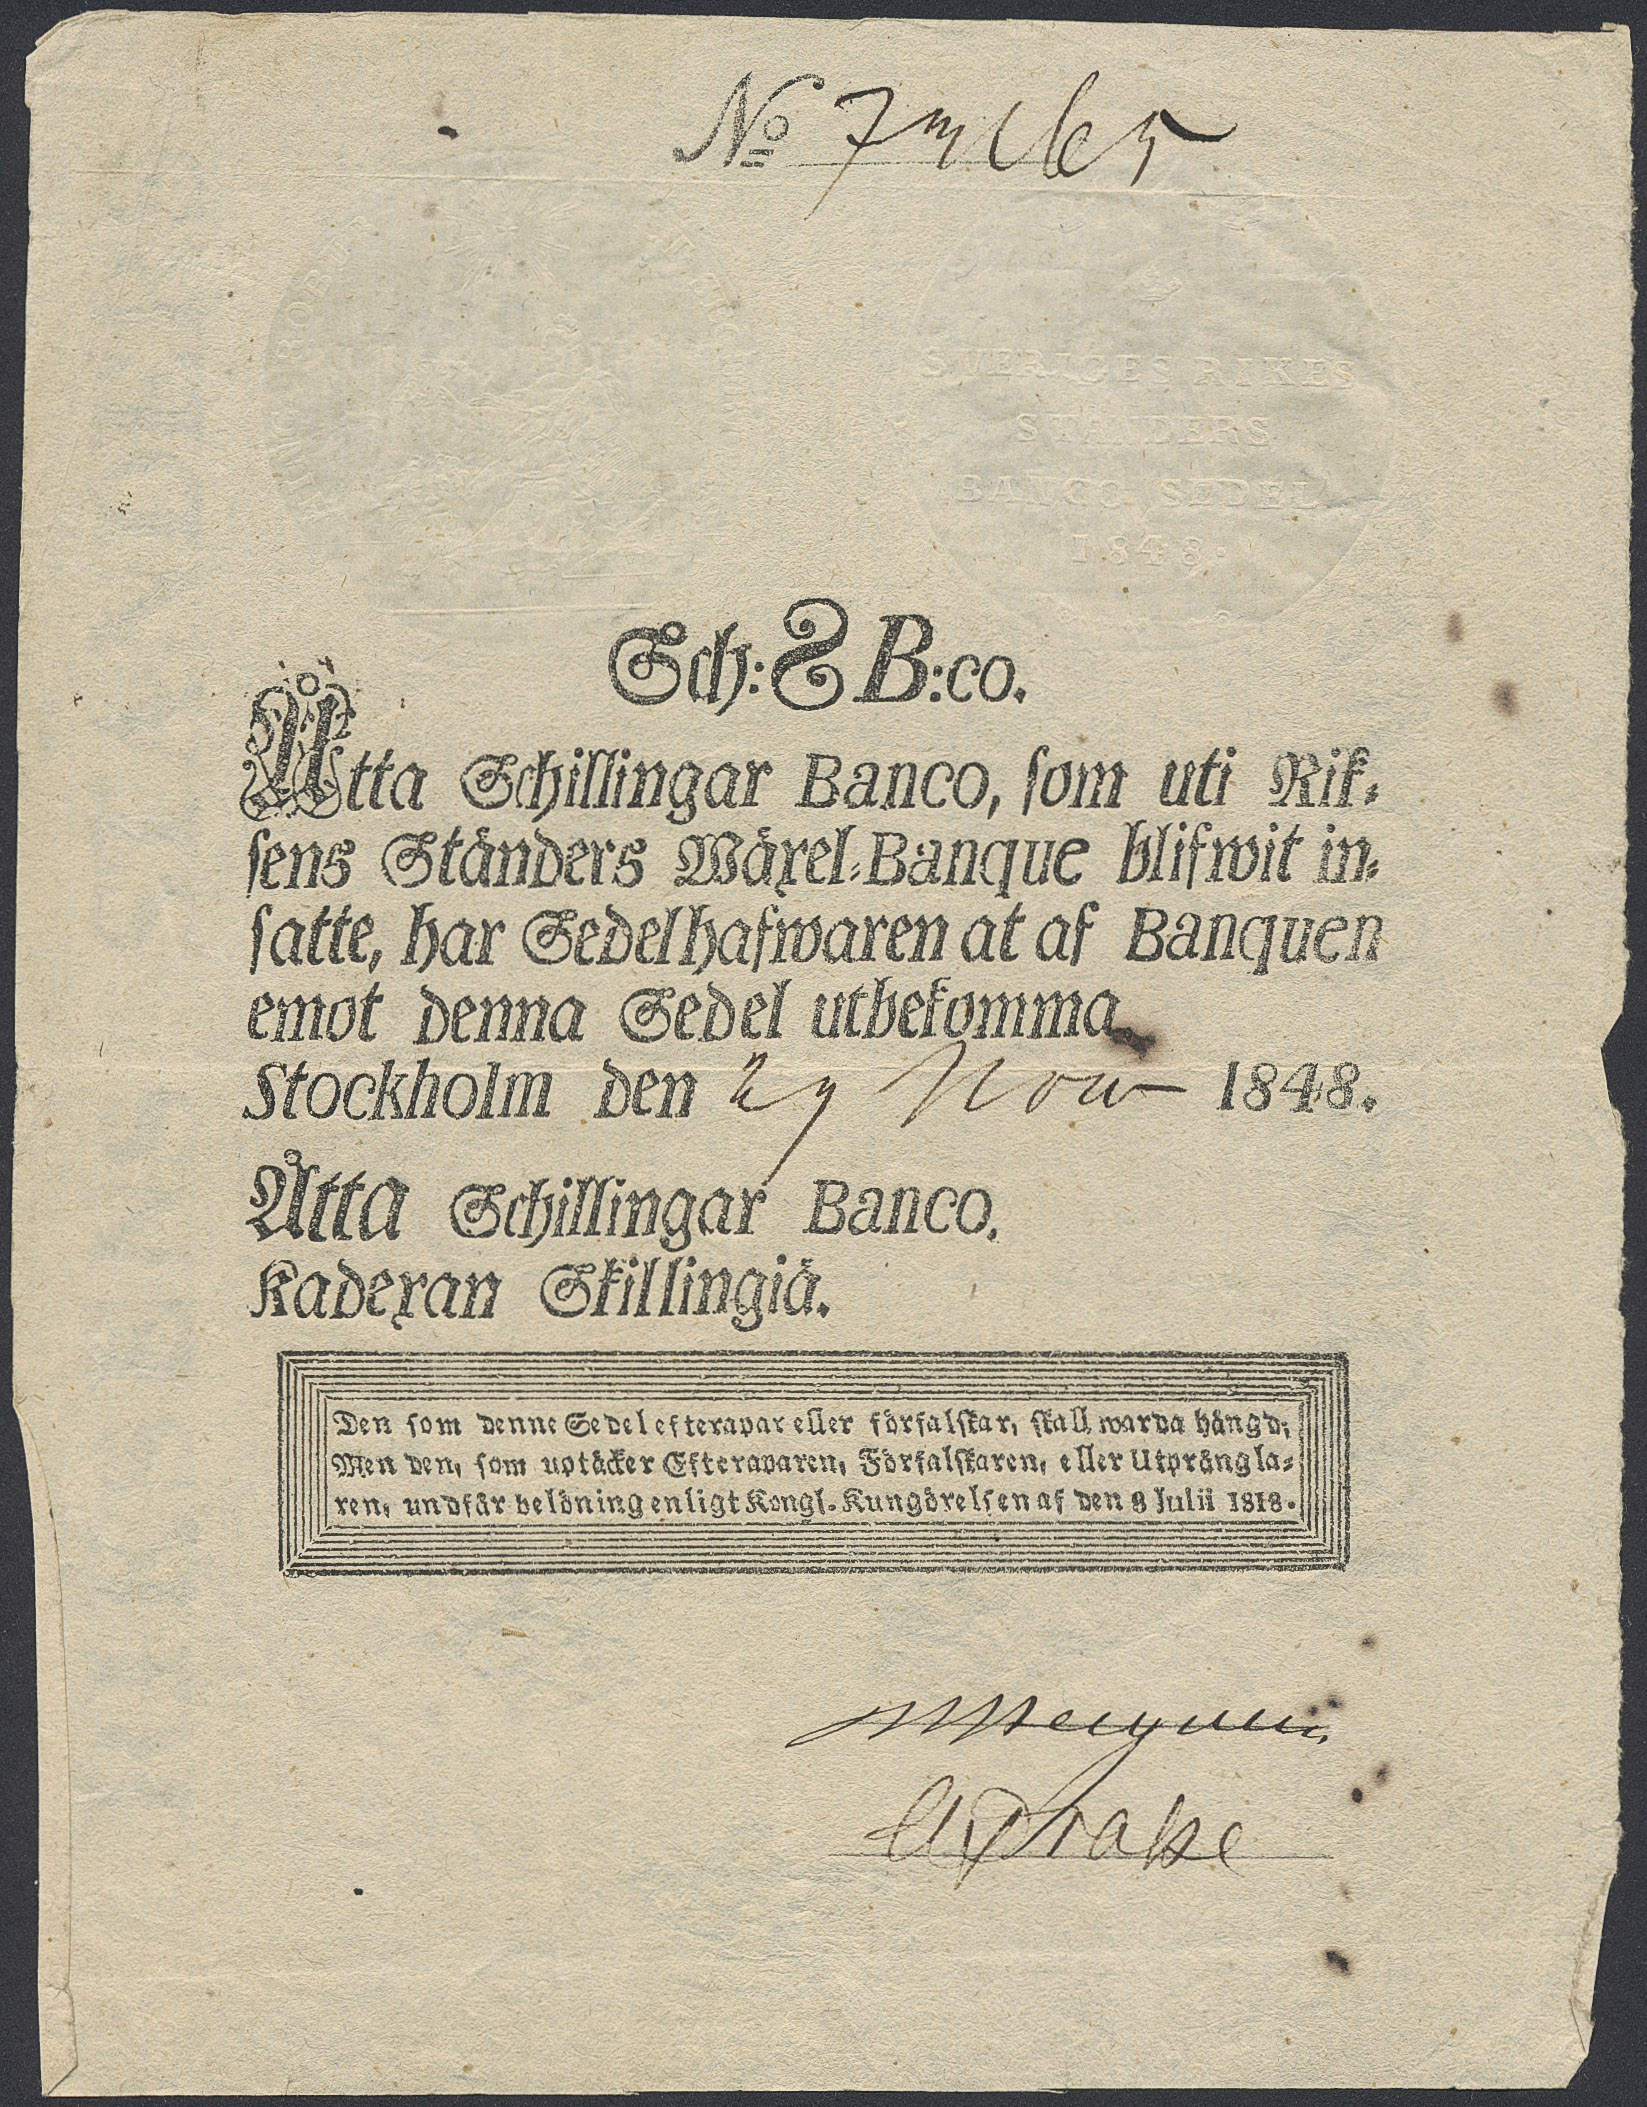 No
SVERIGES RIKES
STÄNDERS
BANCO SEDEL
1848.
Sch: 8 B:co.
Åtta Schillingar Banco, som uti Rik-
sens Ständers Wäxel-Banque blifwit in-
satte, har Sedelhafwaren at af Banquen
emot denna Sedel utbekomma.
Stockholm den 29 Nov 1848.
Åtta Schillingar Banco.
Kadexan Skillingiä.
Den som denne Sedel efterapar eller förfalskar, skall warda hängd;
Men den, som uptäcker Efteraparen, Förfalskaren, eller Utprångla-
ren, undfår belöning enligt Kongl. Kungörelsen af den 8 Julii 1818.
Drake